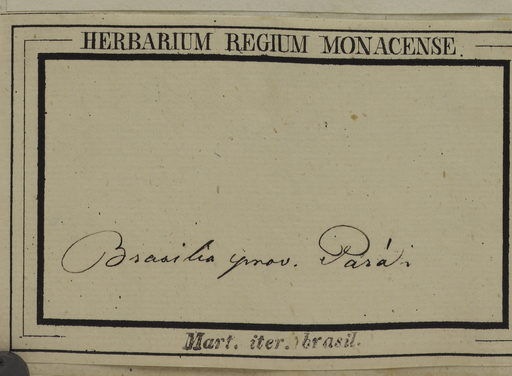 HERBARIUM REGIUM MONACENSE.
Brasilia prov. Pará.
Mart. iter. brasil.